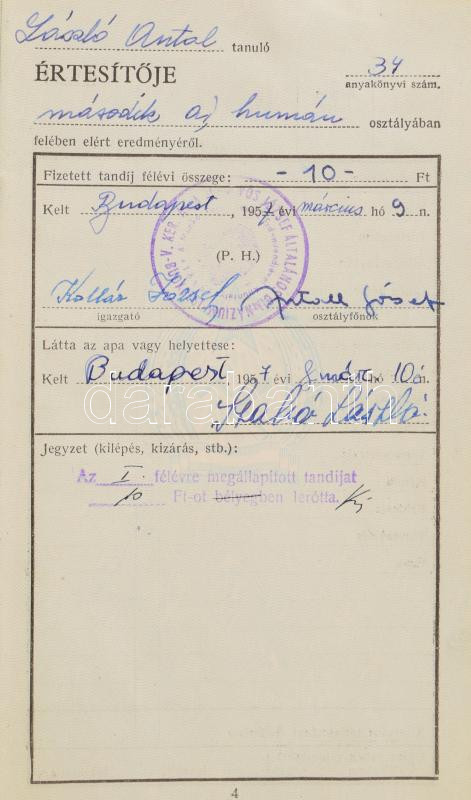 László Antal tanuló
ÉRTESÍTŐJE 34
anyakönyvi szám.
második a) humán osztályában
felében elért eredményéről.
Fizetett tandíj félévi összege: -10- Ft
Kelt Budapest, 1957 évi március hó 9 n.
(P. H.)
Kollár József Antall József
igazgató osztályfőnök
Látta az apa vagy helyettese:
Kelt Budapest, 1957 évi márc hó 10 n.
darabanth
Szabó László
Jegyzet (kilépés, kizárás, stb.):
Az I. félévre megállapított tandíjat
10 Ft-ot bélyegben lerótta.
4